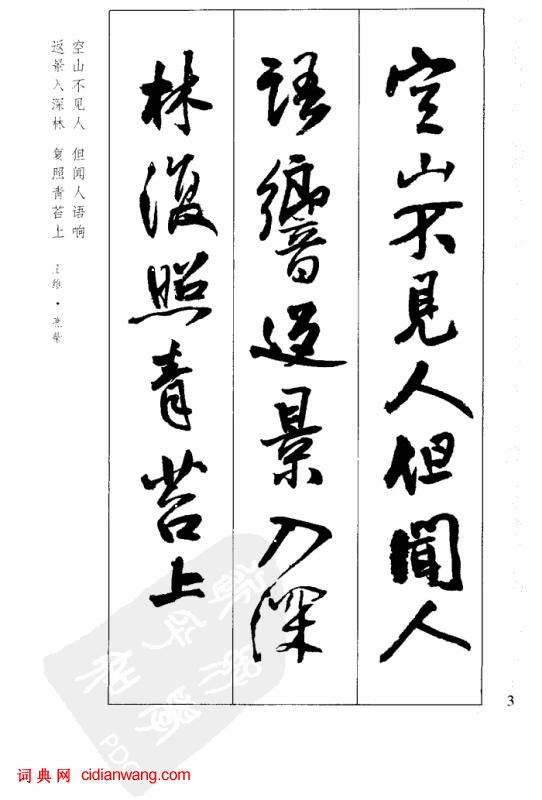 空山不見人但聞人
語響返景入深
林復照青苔上
空山不见人 但闻人语响
返景入深林 复照青苔上 王维·鹿柴
3
词典网 cidianwang.com